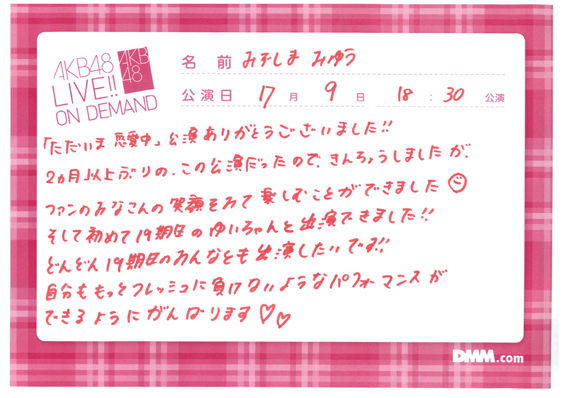 AKB48
LIVE!!
ON DEMAND
AKB
48
名前 みずしま みゆう
公演日 17月 9日 18:30 公演
「ただいま 恋愛中」公演ありがとうございました!!
2ヵ月以上ぶりの、この公演だったので、きんちょうしましたが、
ファンのみなさんの笑顔をみて楽しむことができました
そして初めて19期生のゆいちゃんと出演できました!!
どんどん19期生のみんなとも出演したいです!!
自分ももっとフレッシュに負けないようなパフォーマンスが
できるようにがんばります♡♡
DMM.com